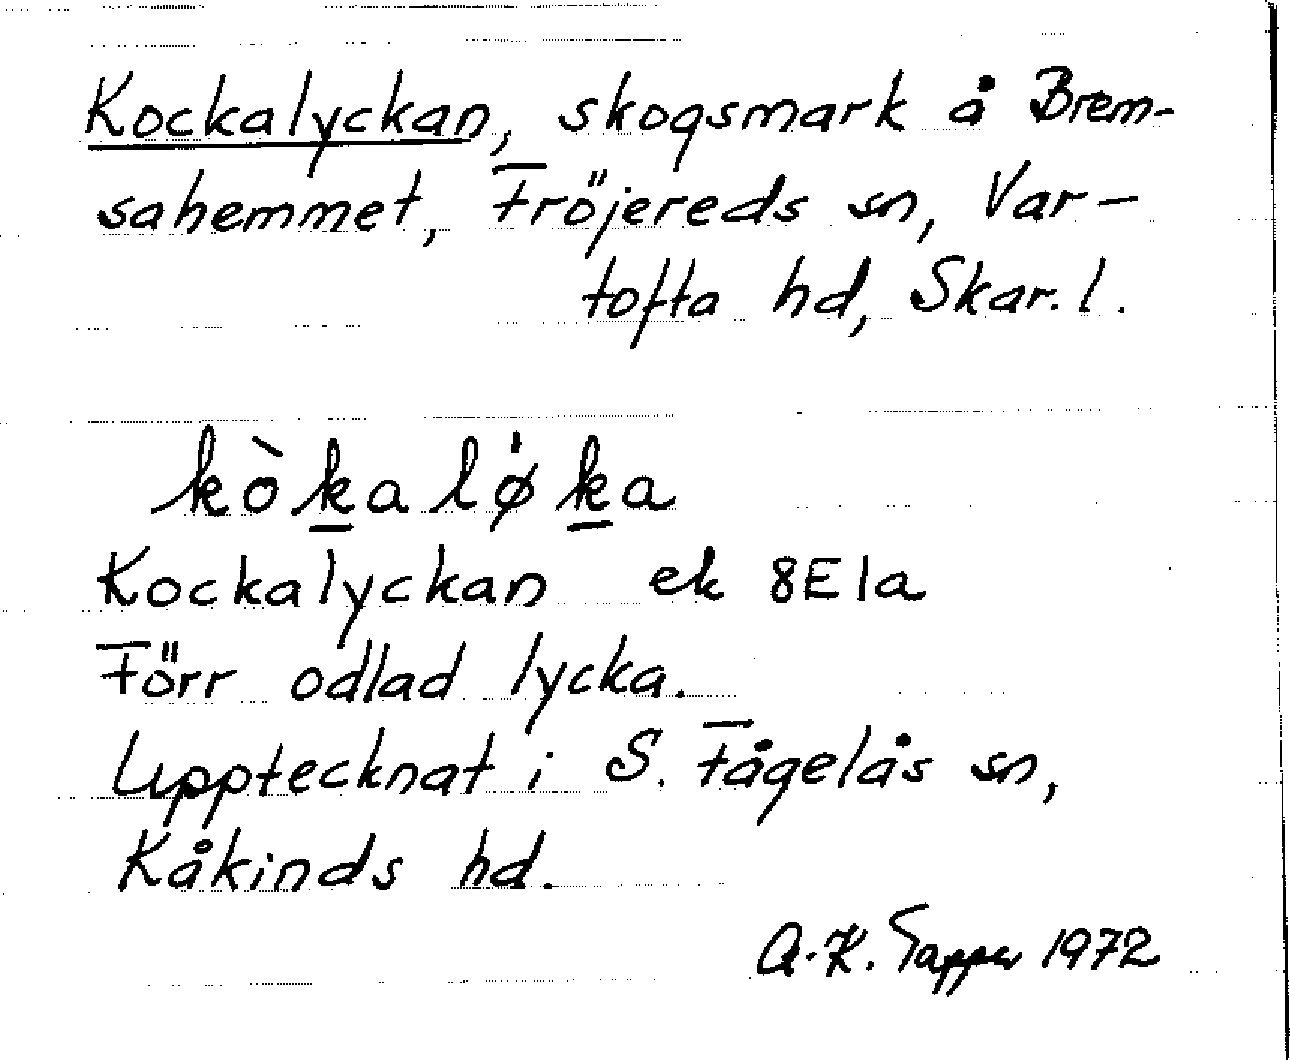 Kockalyckan, skogsmark å Brem-
sahemmet, Fröjereds sn, Var-
tofta hd, Skar. l.
kòkalø̍ka
Kockalyckan ek 8E1a
Förr odlad lycka.
Upptecknat i S. Fågelås sn,
Kåkinds hd.
A.-K. Tapper 1972